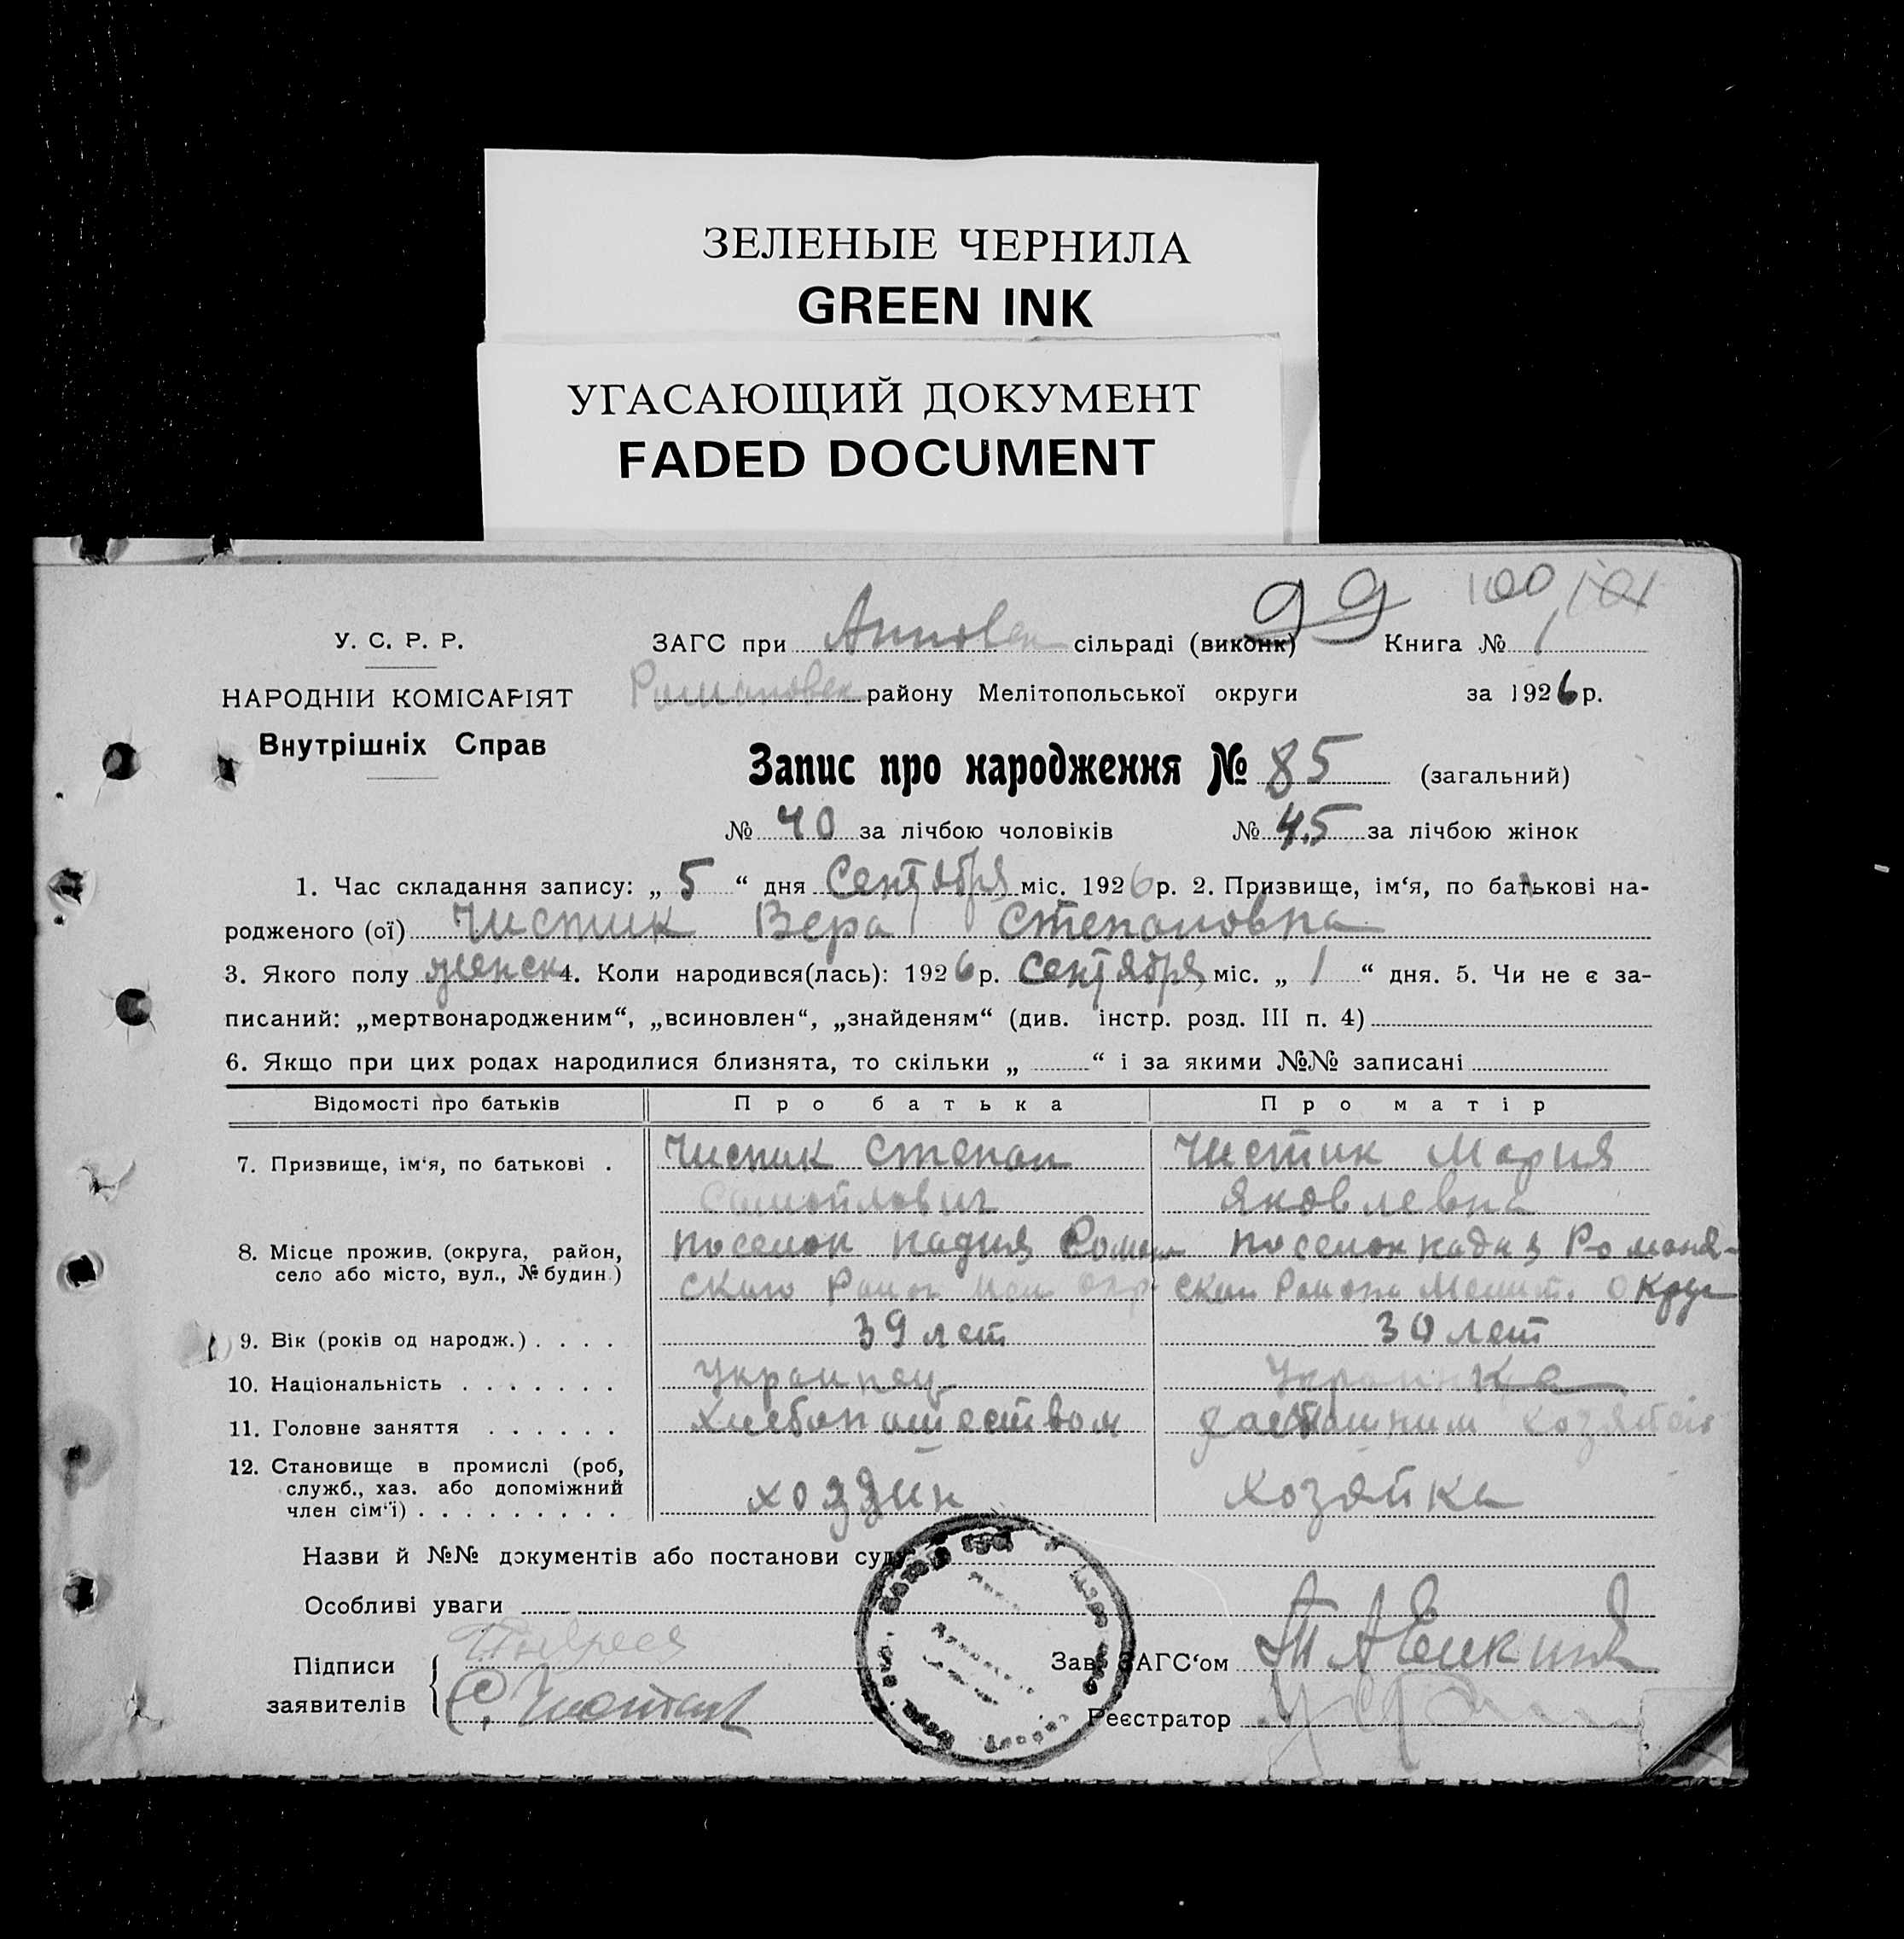 ЗЕЛЕНЫЕ ЧЕРНИЛА
GREEN INK
УГАСАЮЩИЙ ДОКУМЕНТ
FADED DOCUMENT
99 100 101
У. С. Р. Р.
ЗАГС при Анновск сільраді (виконк) Книга № 1
НАРОДНІЙ КОМІСАРІЯТ
Романовск району Мелітопольської округи за 1926 р.
Внутрішніх Справ
Запис про народження № 85 (загальний)
№ 40 за лічбою чоловіків № 45 за лічбою жінок
1. Час складання запису: „ 5 “ дня Сентября міс. 1926 р. 2. Призвище, ім‘я, по батькові на-
родженого (ої) Чистик Вера Степановна
3. Якого полу женск 4. Коли народився(лась): 1926 р. Сентября міс. „ 1 “ дня. 5. Чи не є за-
писаний: „мертвонародженим“, „всиновлен“, „знайденям“ (див. інстр. розд. III п. 4)
6. Якщо при цих родах народилися близнята, то скільки „ “ і за якими №№ записані
Відомості про батьків Про батька Про матір
7. Призвище, ім‘я, по батькові . Чистик Степан Чистик Мария
Самойлович Яковлевна
8. Місце прожив. (округа, район, поселок Надия Роман поселок Надия Романа-
село або місто, вул., № будин.) ского Район Мел Окр. ского Района Мелит. Округ
9. Вік (років од народж.) . . . . 39 лет 30 лет
10. Національність . . . . . . . Украинец Украинка
11. Головне заняття . . . . . . Хлебопашеством домашним хозяйств
12. Становище в промислі (роб,
служб., хаз. або допоміжний хозяин хозяйка
член сім‘ї) . . . . . . . . .
Назви й №№ документів або постанови суду
Особливі уваги
Підписи
заявителів С. Чистик
Зав. ЗАГС‘ом
Реєстратор